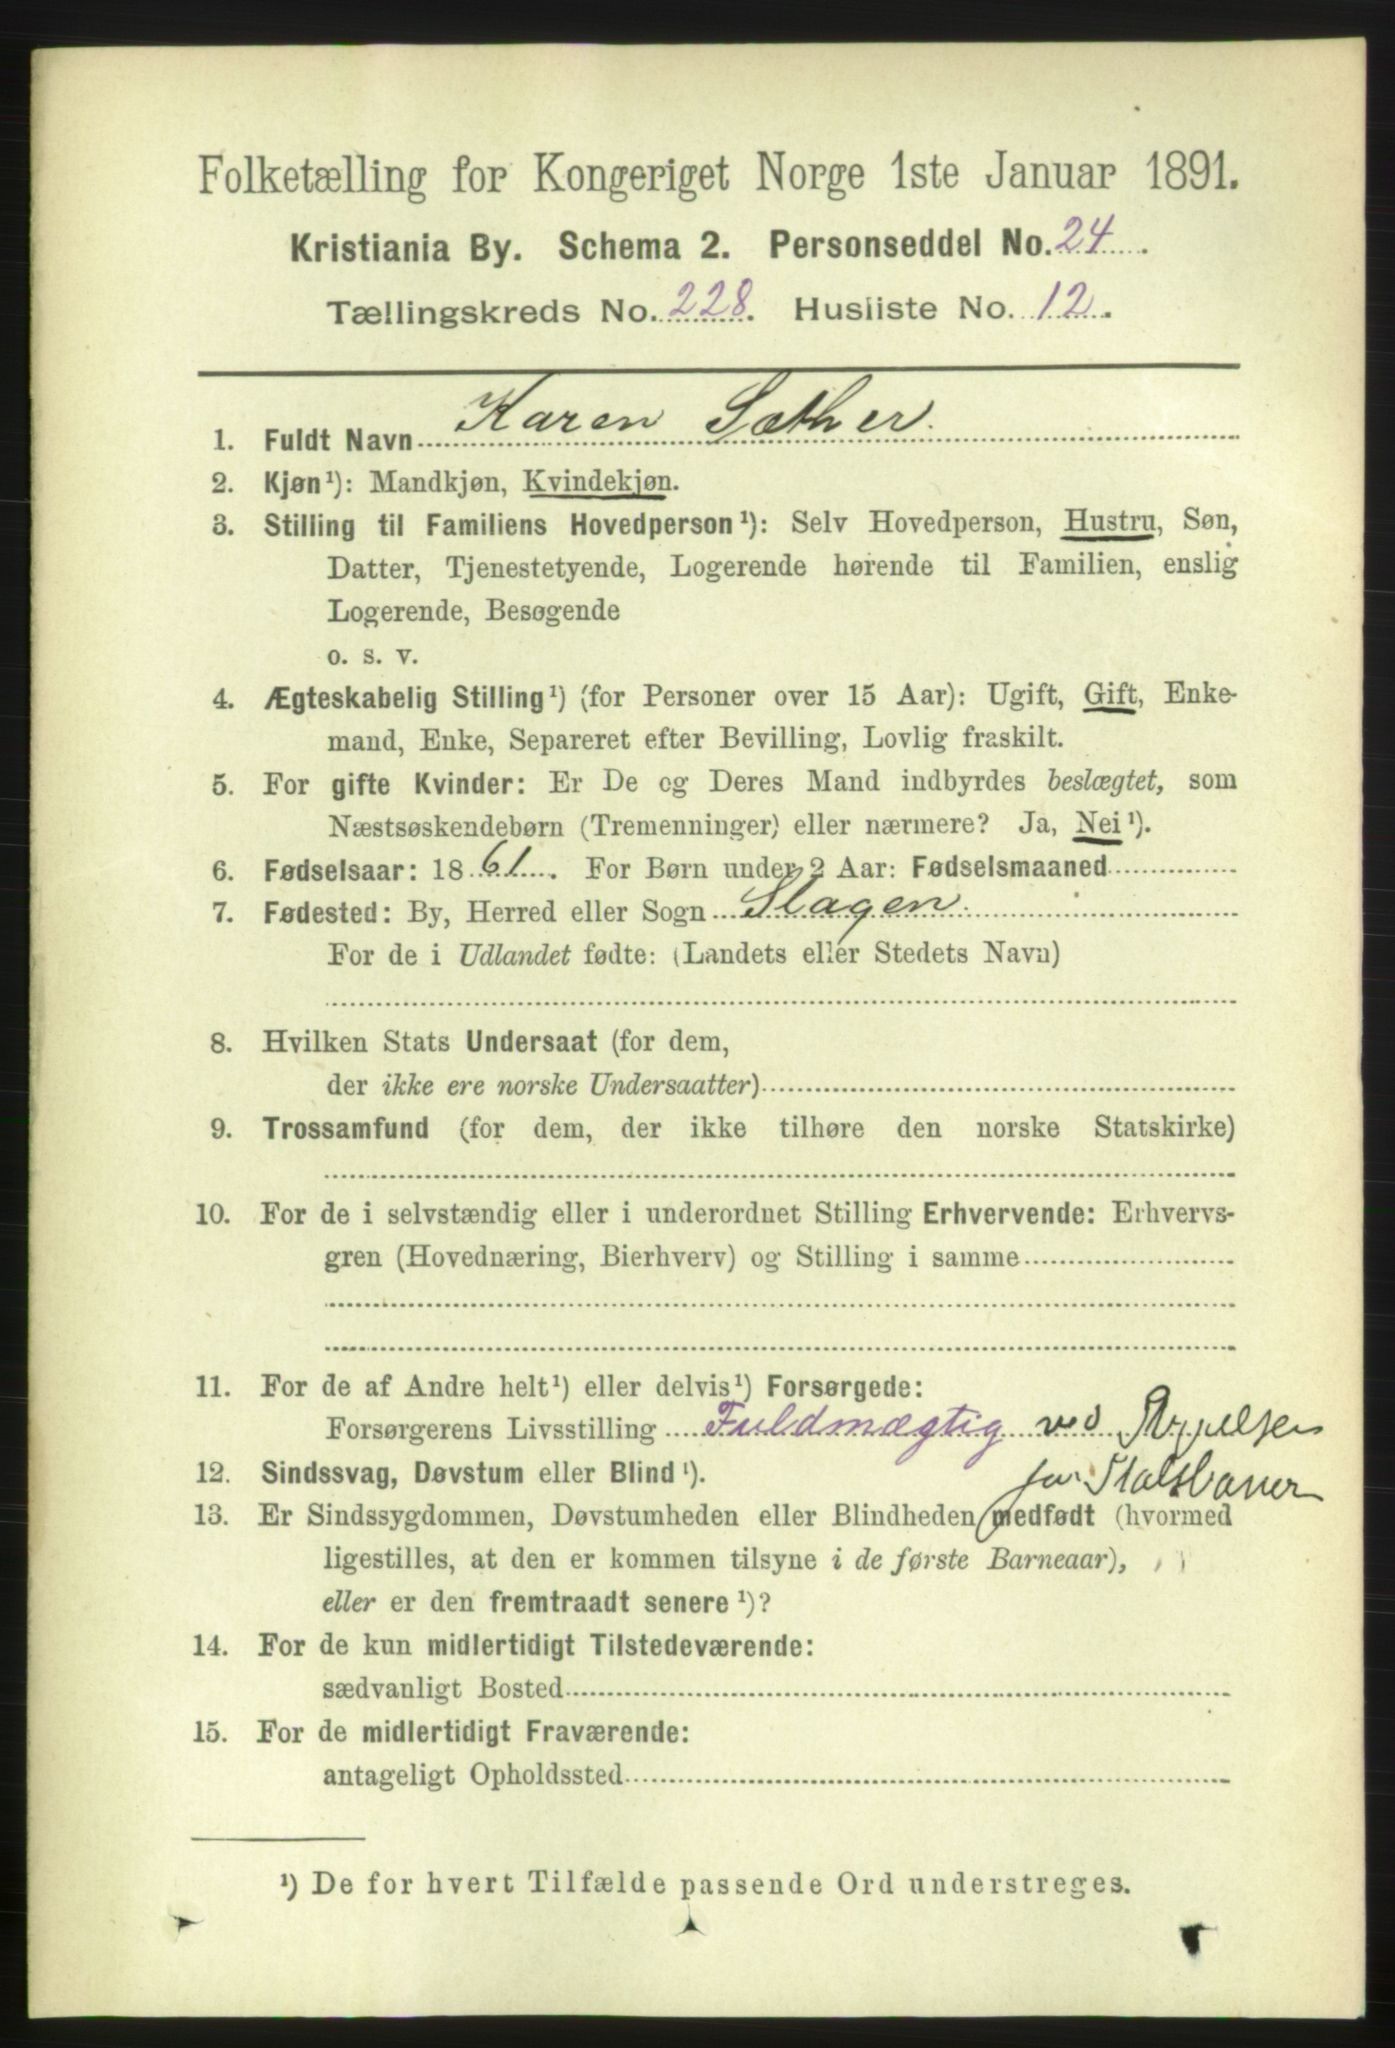 Folketælling for Kongeriget Norge 1ste Januar 1891.
Kristiania By. Schema 2. Personseddel No. 24.
Tællingskreds No. 228. Husliste No. 12.
1. Fuldt Navn Karen Sæther.
2. Kjøn¹): Mandkjøn, Kvindekjøn.
3. Stilling til Familiens Hovedperson¹): Selv Hovedperson, Hustru, Søn,
Datter, Tjenestetyende, Logerende hørende til Familien, enslig
Logerende, Besøgende
o. s. v.
4. Ægteskabelig Stilling¹) (for Personer over 15 Aar): Ugift, Gift, Enke-
mand, Enke, Separeret efter Bevilling, Lovlig fraskilt.
5. For gifte Kvinder: Er De og Deres Mand indbyrdes beslægtet, som
Næstsøskendebørn (Tremenninger) eller nærmere? Ja, Nei¹).
6. Fødselsaar: 1861. For Børn under 2 Aar: Fødselsmaaned
7. Fødested: By, Herred eller Sogn Slagen.
For de i Udlandet fødte: (Landets eller Stedets Navn)
8. Hvilken Stats Undersaat (for dem,
der ikke ere norske Undersaatter)
9. Trossamfund (for dem, der ikke tilhøre den norske Statskirke)
10. For de i selvstændig eller i underordnet Stilling Erhvervende: Erhvervs-
gren (Hovednæring, Bierhverv) og Stilling i samme
11. For de af Andre helt¹) eller delvis¹) Forsørgede:
Forsørgerens Livsstilling Fuldmægtig ved
12. Sindssvag, Døvstum eller Blind¹). for Statsbaner
13. Er Sindssygdommen, Døvstumheden eller Blindheden medfødt (hvormed
ligestilles, at den er kommen tilsyne i de første Barneaar),
eller er den fremtraadt senere¹)?
14. For de kun midlertidigt Tilstedeværende:
sædvanligt Bosted
15. For de midlertidigt Fraværende:
antageligt Opholdssted
¹) De for hvert Tilfælde passende Ord understreges.